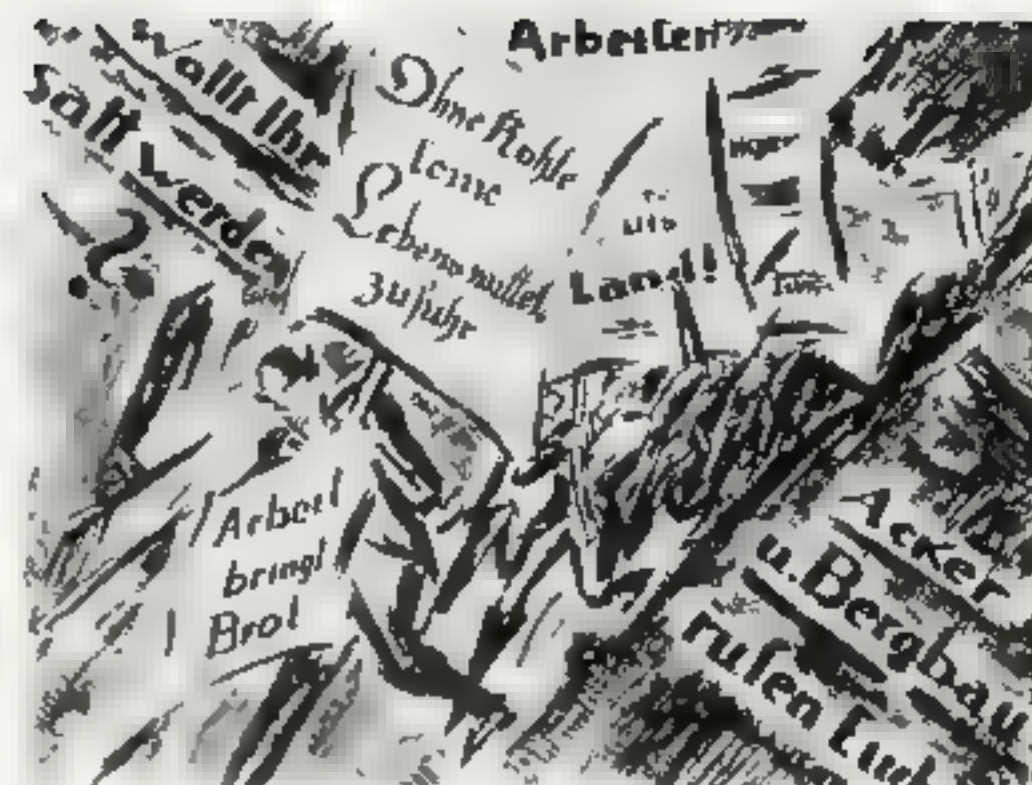 Wollt Ihr
satt werden
?
Ohne Kohle
keine
Lebensmittel
zufuhr
Arbeiten
Land!
Arbeit
bringt
Brot
Acker
u. Bergbau
rufen Euch